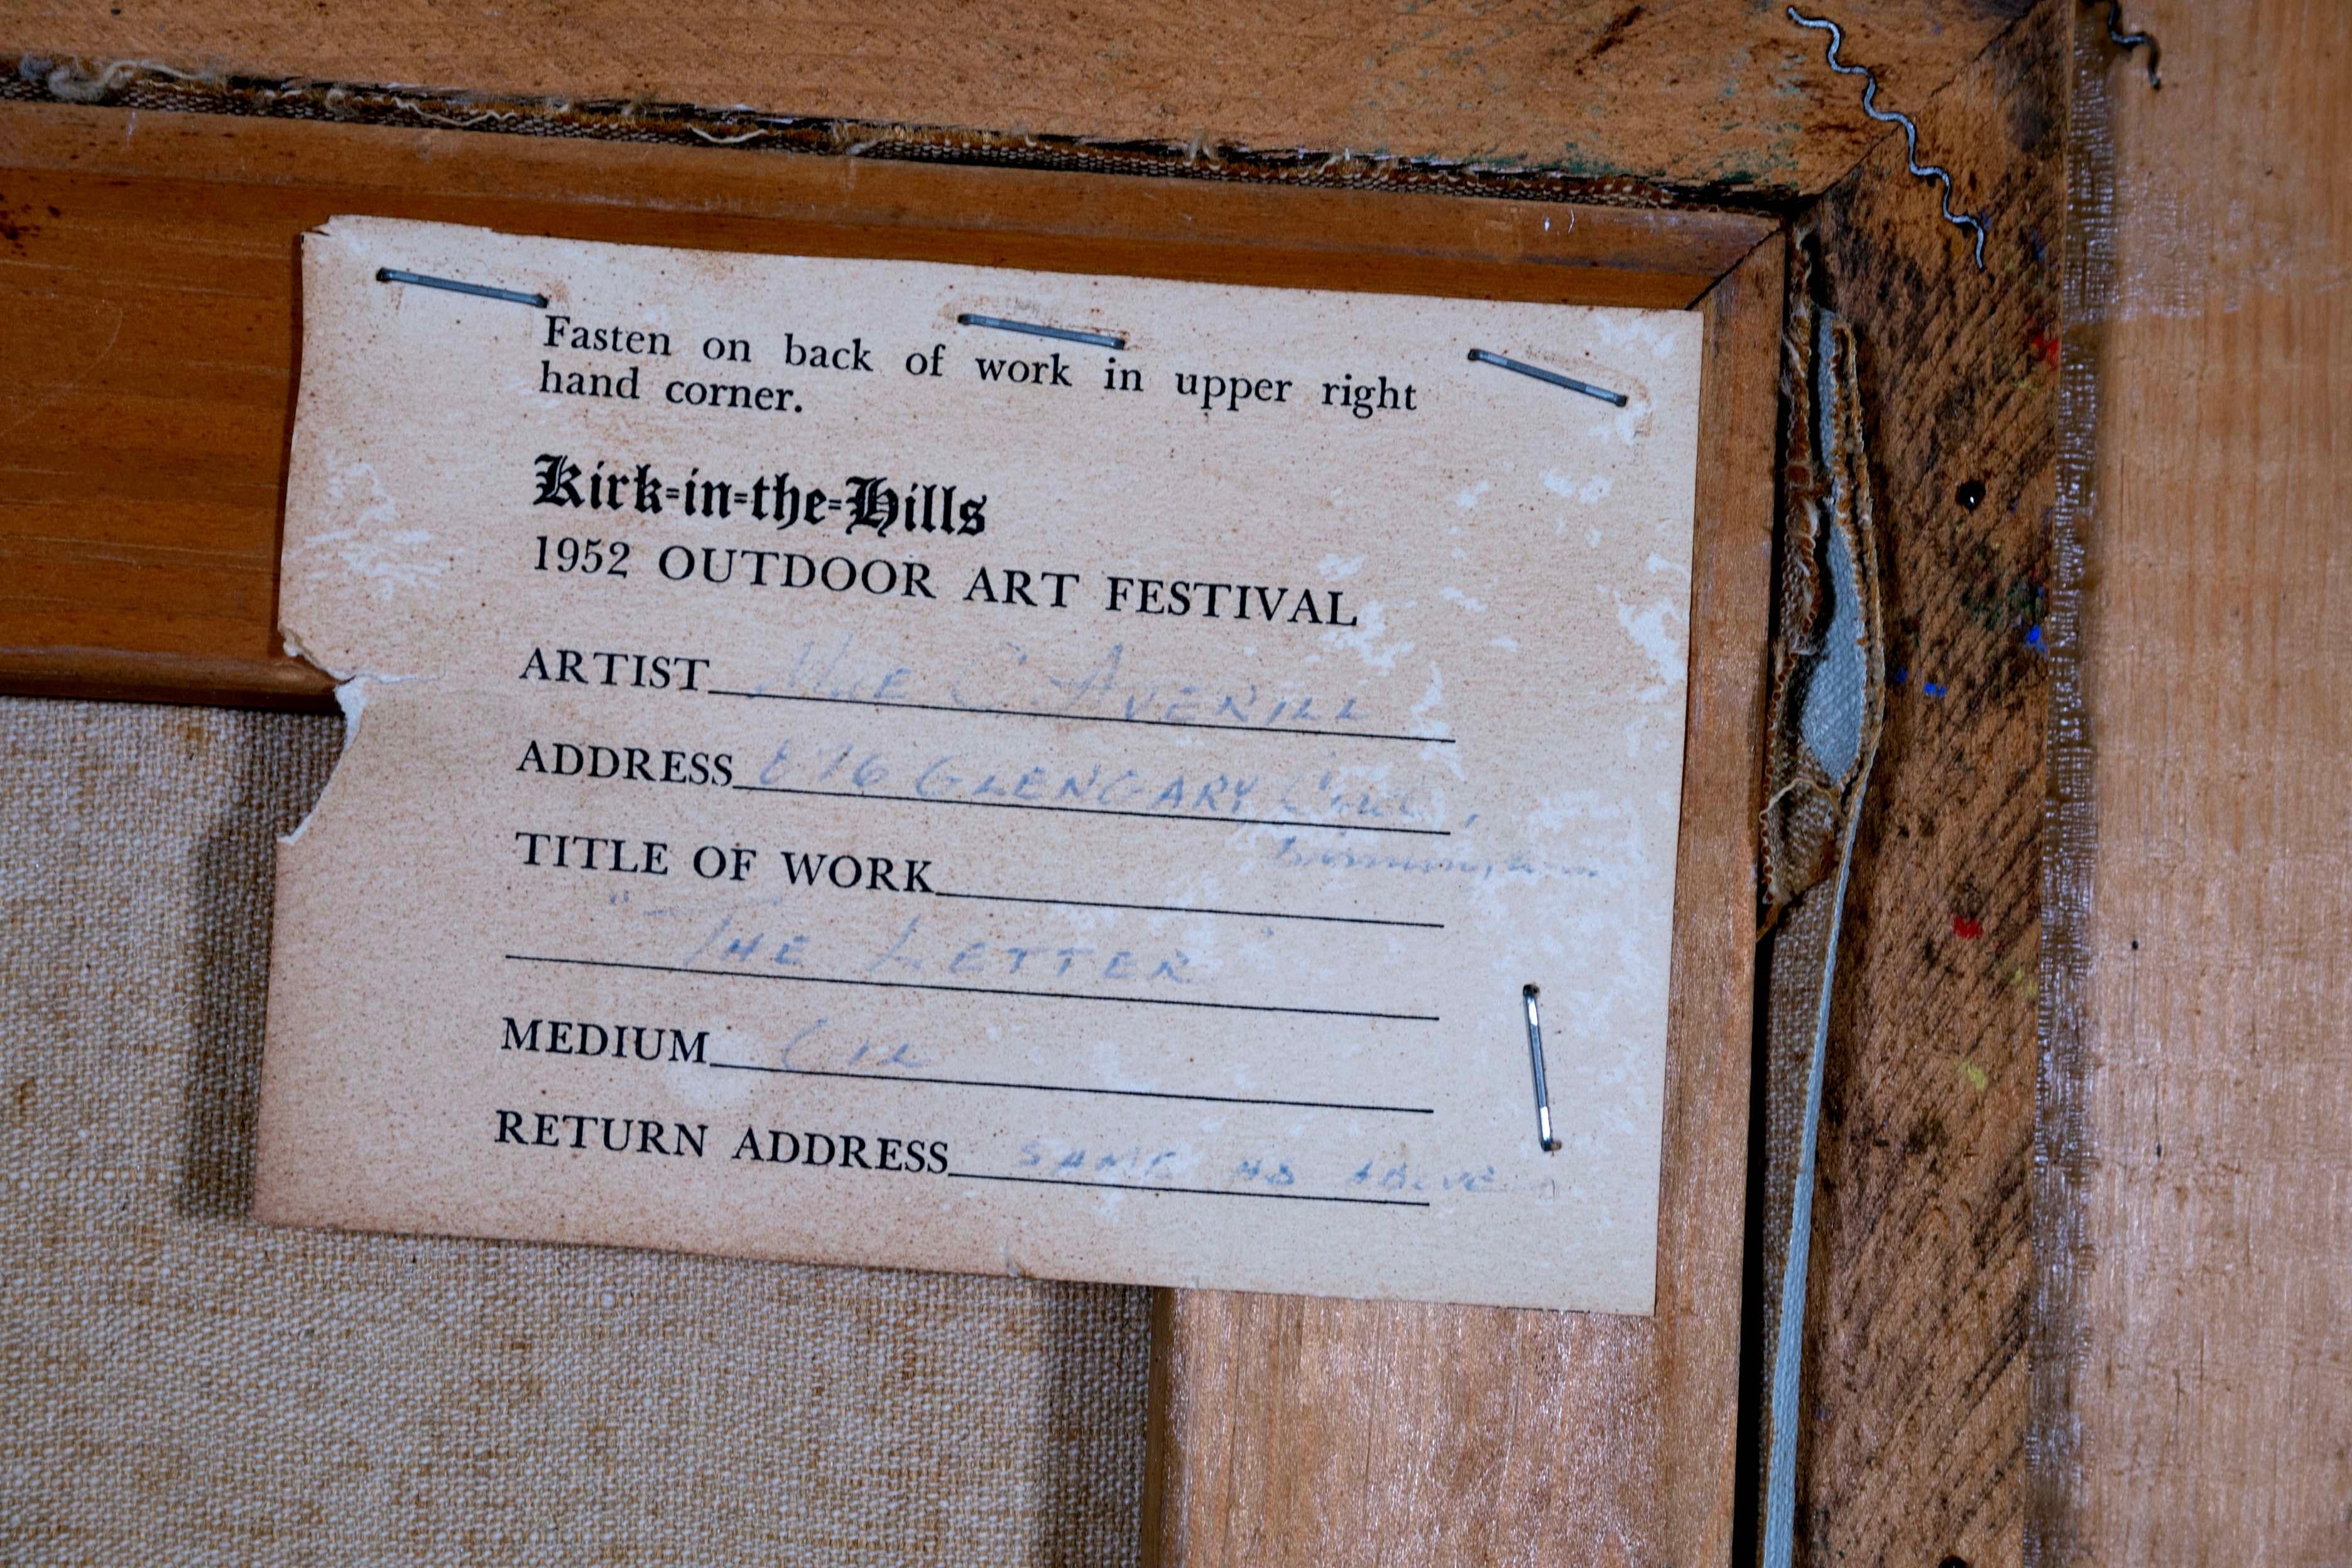 Fasten on back of work in upper right
hand corner.
Kirk-in-the-Hills
1952 OUTDOOR ART FESTIVAL
ARTIST C. AVERILL
ADDRESS 876 GLENGARY
Birmingham
TITLE OF WORK
"THE LETTER"
MEDIUM OIL
RETURN ADDRESS SAME AS ABOVE